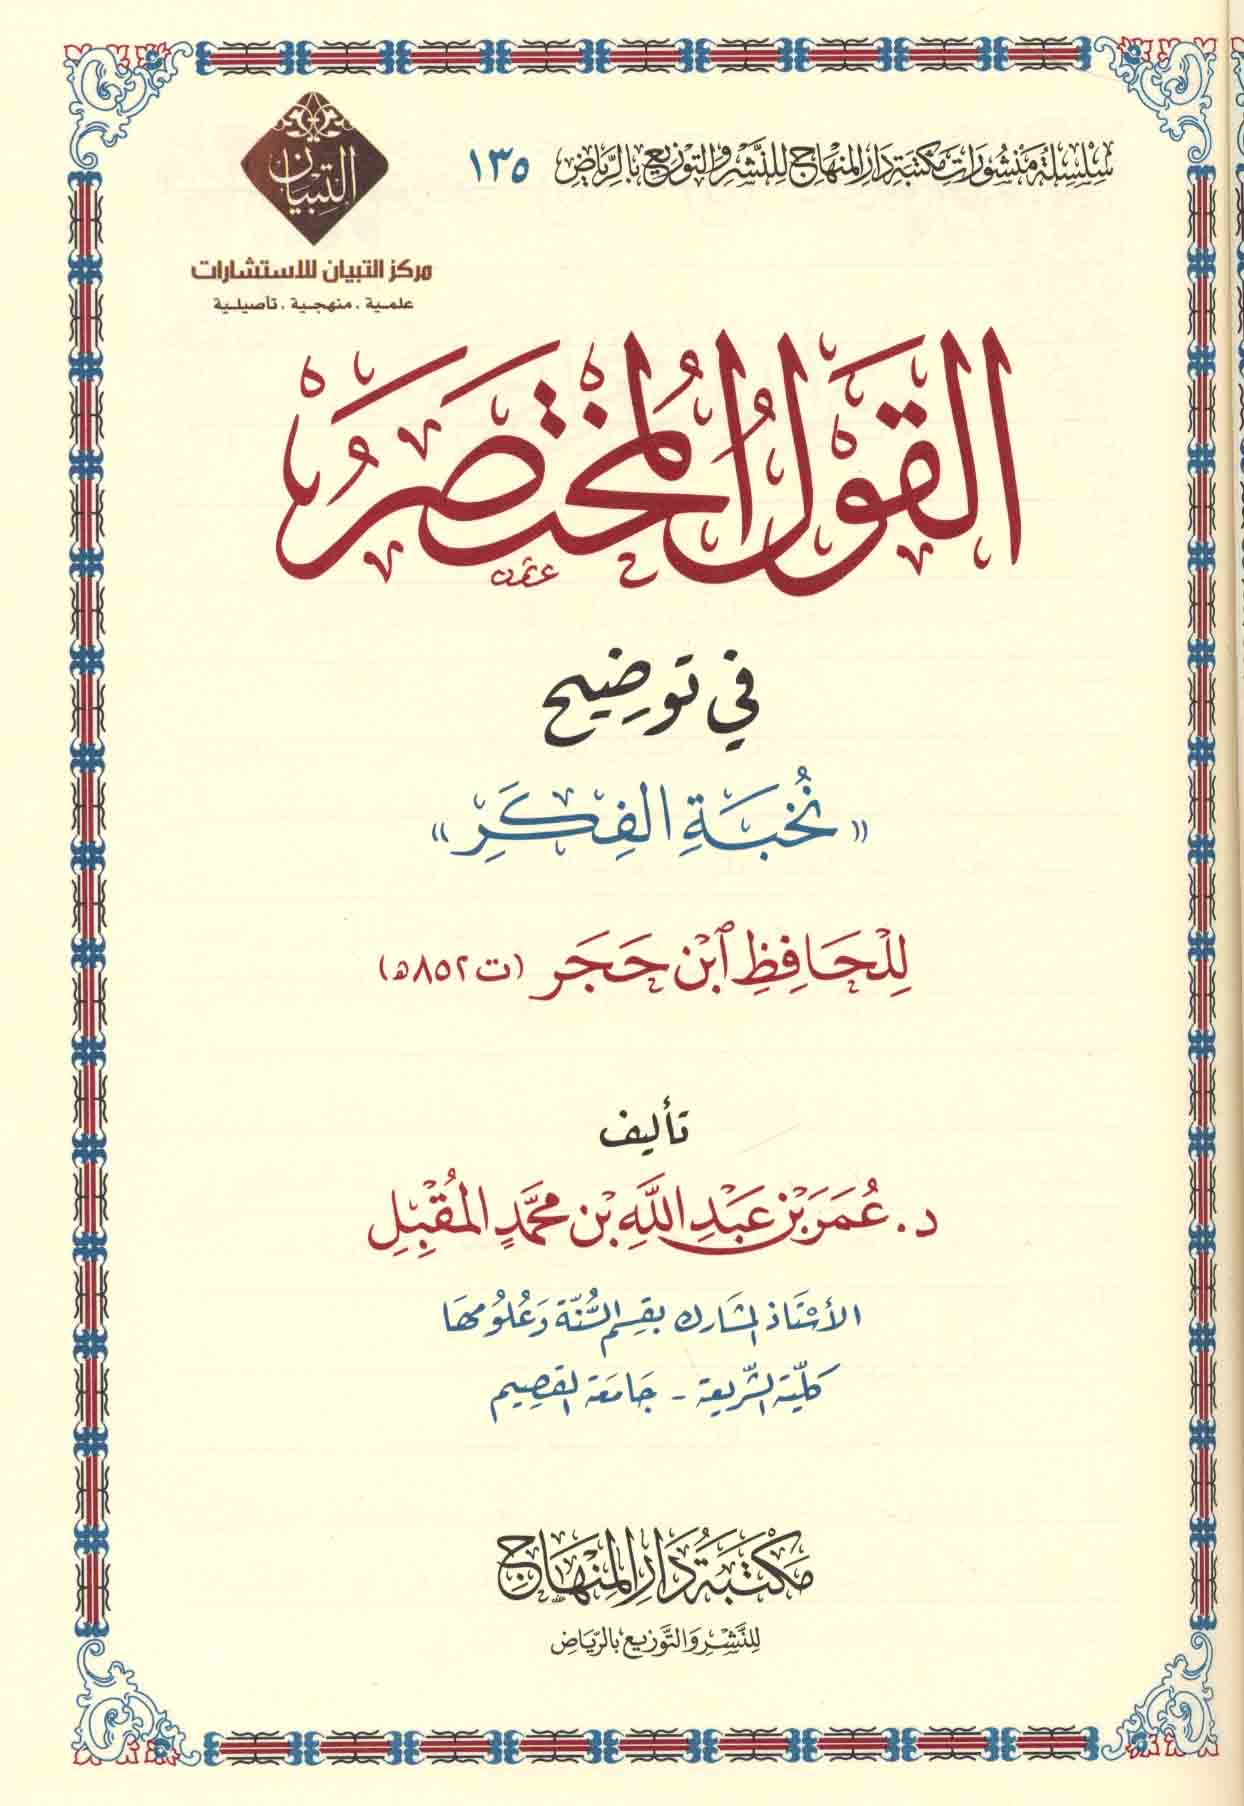 سِلْسِلَةُ مَنْشُورَاتِ مَكْتَبَةِ دَارِ المِنْهَاجِ لِلنَّشْرِ وَالتَّوْزِيعِ بِالرِّيَاضِ ١٣٥
التبيان
مركز التبيان للاستشارات
علمية . منهجية . تأصيلية
القَوْلُ المُخْتَصَرُ
في توضيح
« نُخْبَةِ الفِكَرِ »
لِلْحَافِظِ ابْنِ حَجَر (ت ٨٥٢هـ)
تأليف
د. عُمَرَ بْنِ عَبْدِ اللَّهِ بْنِ مُحَمَّدٍ المُقْبِلِ
الأستاذ المشارك بقسم السُّنّة وَعُلُومِهَا
كليّة الشّريعة - جَامعَة القصِيم
مَكْتَبَةُ دَارِ المِنْهَاجِ
لِلنَّشْرِ وَالتَّوْزِيعِ بِالرِّيَاضِ